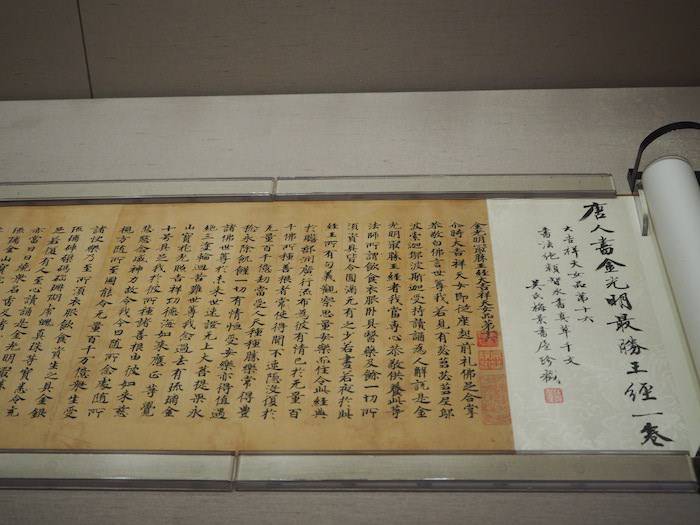 唐人書金光明最勝王經一卷
大吉祥天女品第十六
書法絕類智永書真草千文
吳氏梅景書屋珍藏
金光明最勝王經大吉祥天女品第
尒時大吉祥天女即從座起前礼佛足合掌
恭敬白佛言世尊我若見有苾芻苾芻尼鄔
波索迦鄔波斯迦受持讀誦為人解說是金
光明最勝王經者我當專心恭敬供養此等
法師所謂飲食衣服卧具醫藥及餘一切所
須資具皆令圓滿无有乏少若晝若夜於此
經王所有句義觀察思量安樂而住令此經典
於贍部洲廣行流布為彼有情已於无量百
千佛所種善根者常使得聞不速隱沒復於
无量百千億劫當受人天種種勝樂常得豐
稔永除飢饉一切有情恒受安樂亦得值遇
諸佛世尊於未来世速證无上大菩提果永
絕三塗輪迴苦難世尊我念過去有琉璃金
山寶花光照吉祥功德海如来應正等覺
十号具足我於彼所種諸善根由彼如来慈
悲愍念威神力故令我今日隨所念處隨所
視方隨所至國能令无量百千万億衆生受
諸快樂乃至所須衣服飲食資生之具金銀
琉璃硨磲碼瑙珊瑚虎魄真珠等寶悉令充
足若復有人至心讀誦是金光明最勝
亦當日日燒衆
琉璃金山寶